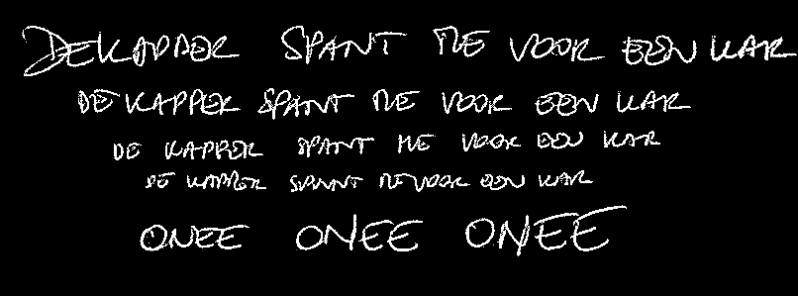 DE KAPPER SPANT ME VOOR EEN KAR
DE KAPPER SPANT ME VOOR EEN KAR
DE KAPPER SPANT ME VOOR EEN KAR
DE KAPPER SPANT ME VOOR EEN KAR
ONEE ONEE ONEE